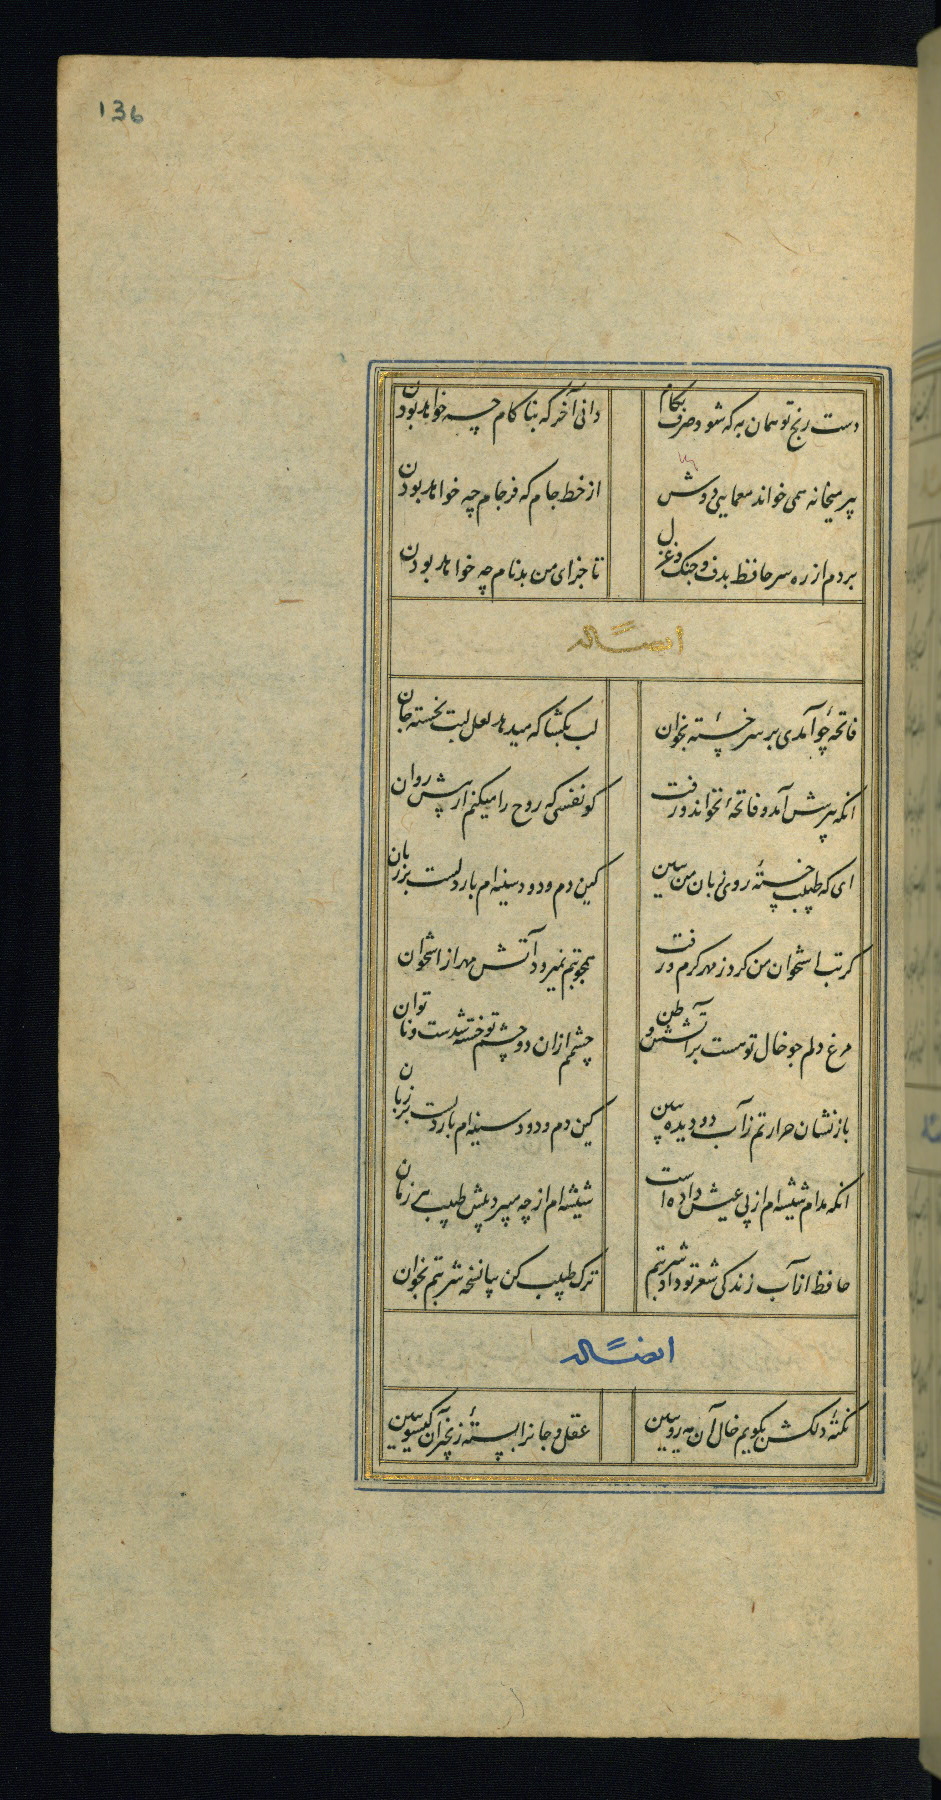 136
دست رنج تو همان به که شود صرف بکام
دانی آخر که بناکام چه خواهد بودن
پیر میخانه همی خواند معمایی دوش
از خط جام که فرجام چه خواهد بودن
بردم از ره سر حافظ بدف و چنک و غزل
تا جزای من بدنام چه خواهد بودن
ایضاً له
فاتحهٔ چو آمدی بر سر خستهٔ بخوان
لب بکشا که میدهد لعل لبت بخسته جان
انکه بپرسش آمد و فاتحهٔ نخواند و رفت
کو نفسی که روح را میکنم از پیش روان
ای که طبیب خستهٔ روی زبان من ببین
کین دم و دود سینه ام بار دلست بر زبان
کر تب استخوان من کرد ز مهر کرم و رفت
همچو تبم نمیرود آتش مهر از استخوان
مرغ دلم چو خال تو هست بر آتشش وطن
چشمم ازان دو چشم تو خسته شدست و ناتوان
باز نشان حرارتم زآب دو دیده ببین
کین دم و دود سینه ام بار دلست بر زبان
انکه مدام شیشه ام از پی عیش داده است
شیشه ام از چه میبرد پیش طبیب هر زمان
حافظ از آب زندکی شعر تو داد شربتم
ترک طبیب کن بیا نسخه شربتم بخوان
ایضاً له
نکتهٔ دلکش بکویم خال آن مه رو ببین
عقل و جانرا بستهٔ زنجیر آن کیسو ببین